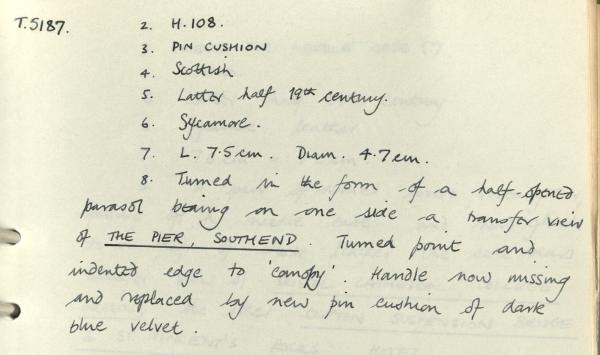 T.5187. 2. H.108.
3. PIN CUSHION
4. Scottish
5. Latter half 19th century.
6. Sycamore.
7. L. 7.5 cm. Diam. 4.7 cm.
8. Turned in the form of a half-opened
parasol bearing on one side a transfer view
of THE PIER, SOUTHEND. Turned point and
indented edge to 'canopy'. Handle now missing
and replaced by new pin cushion of dark
blue velvet.
SUSPENSION BRIDGE
& ST VINCENT'S ROCKS HOTEL